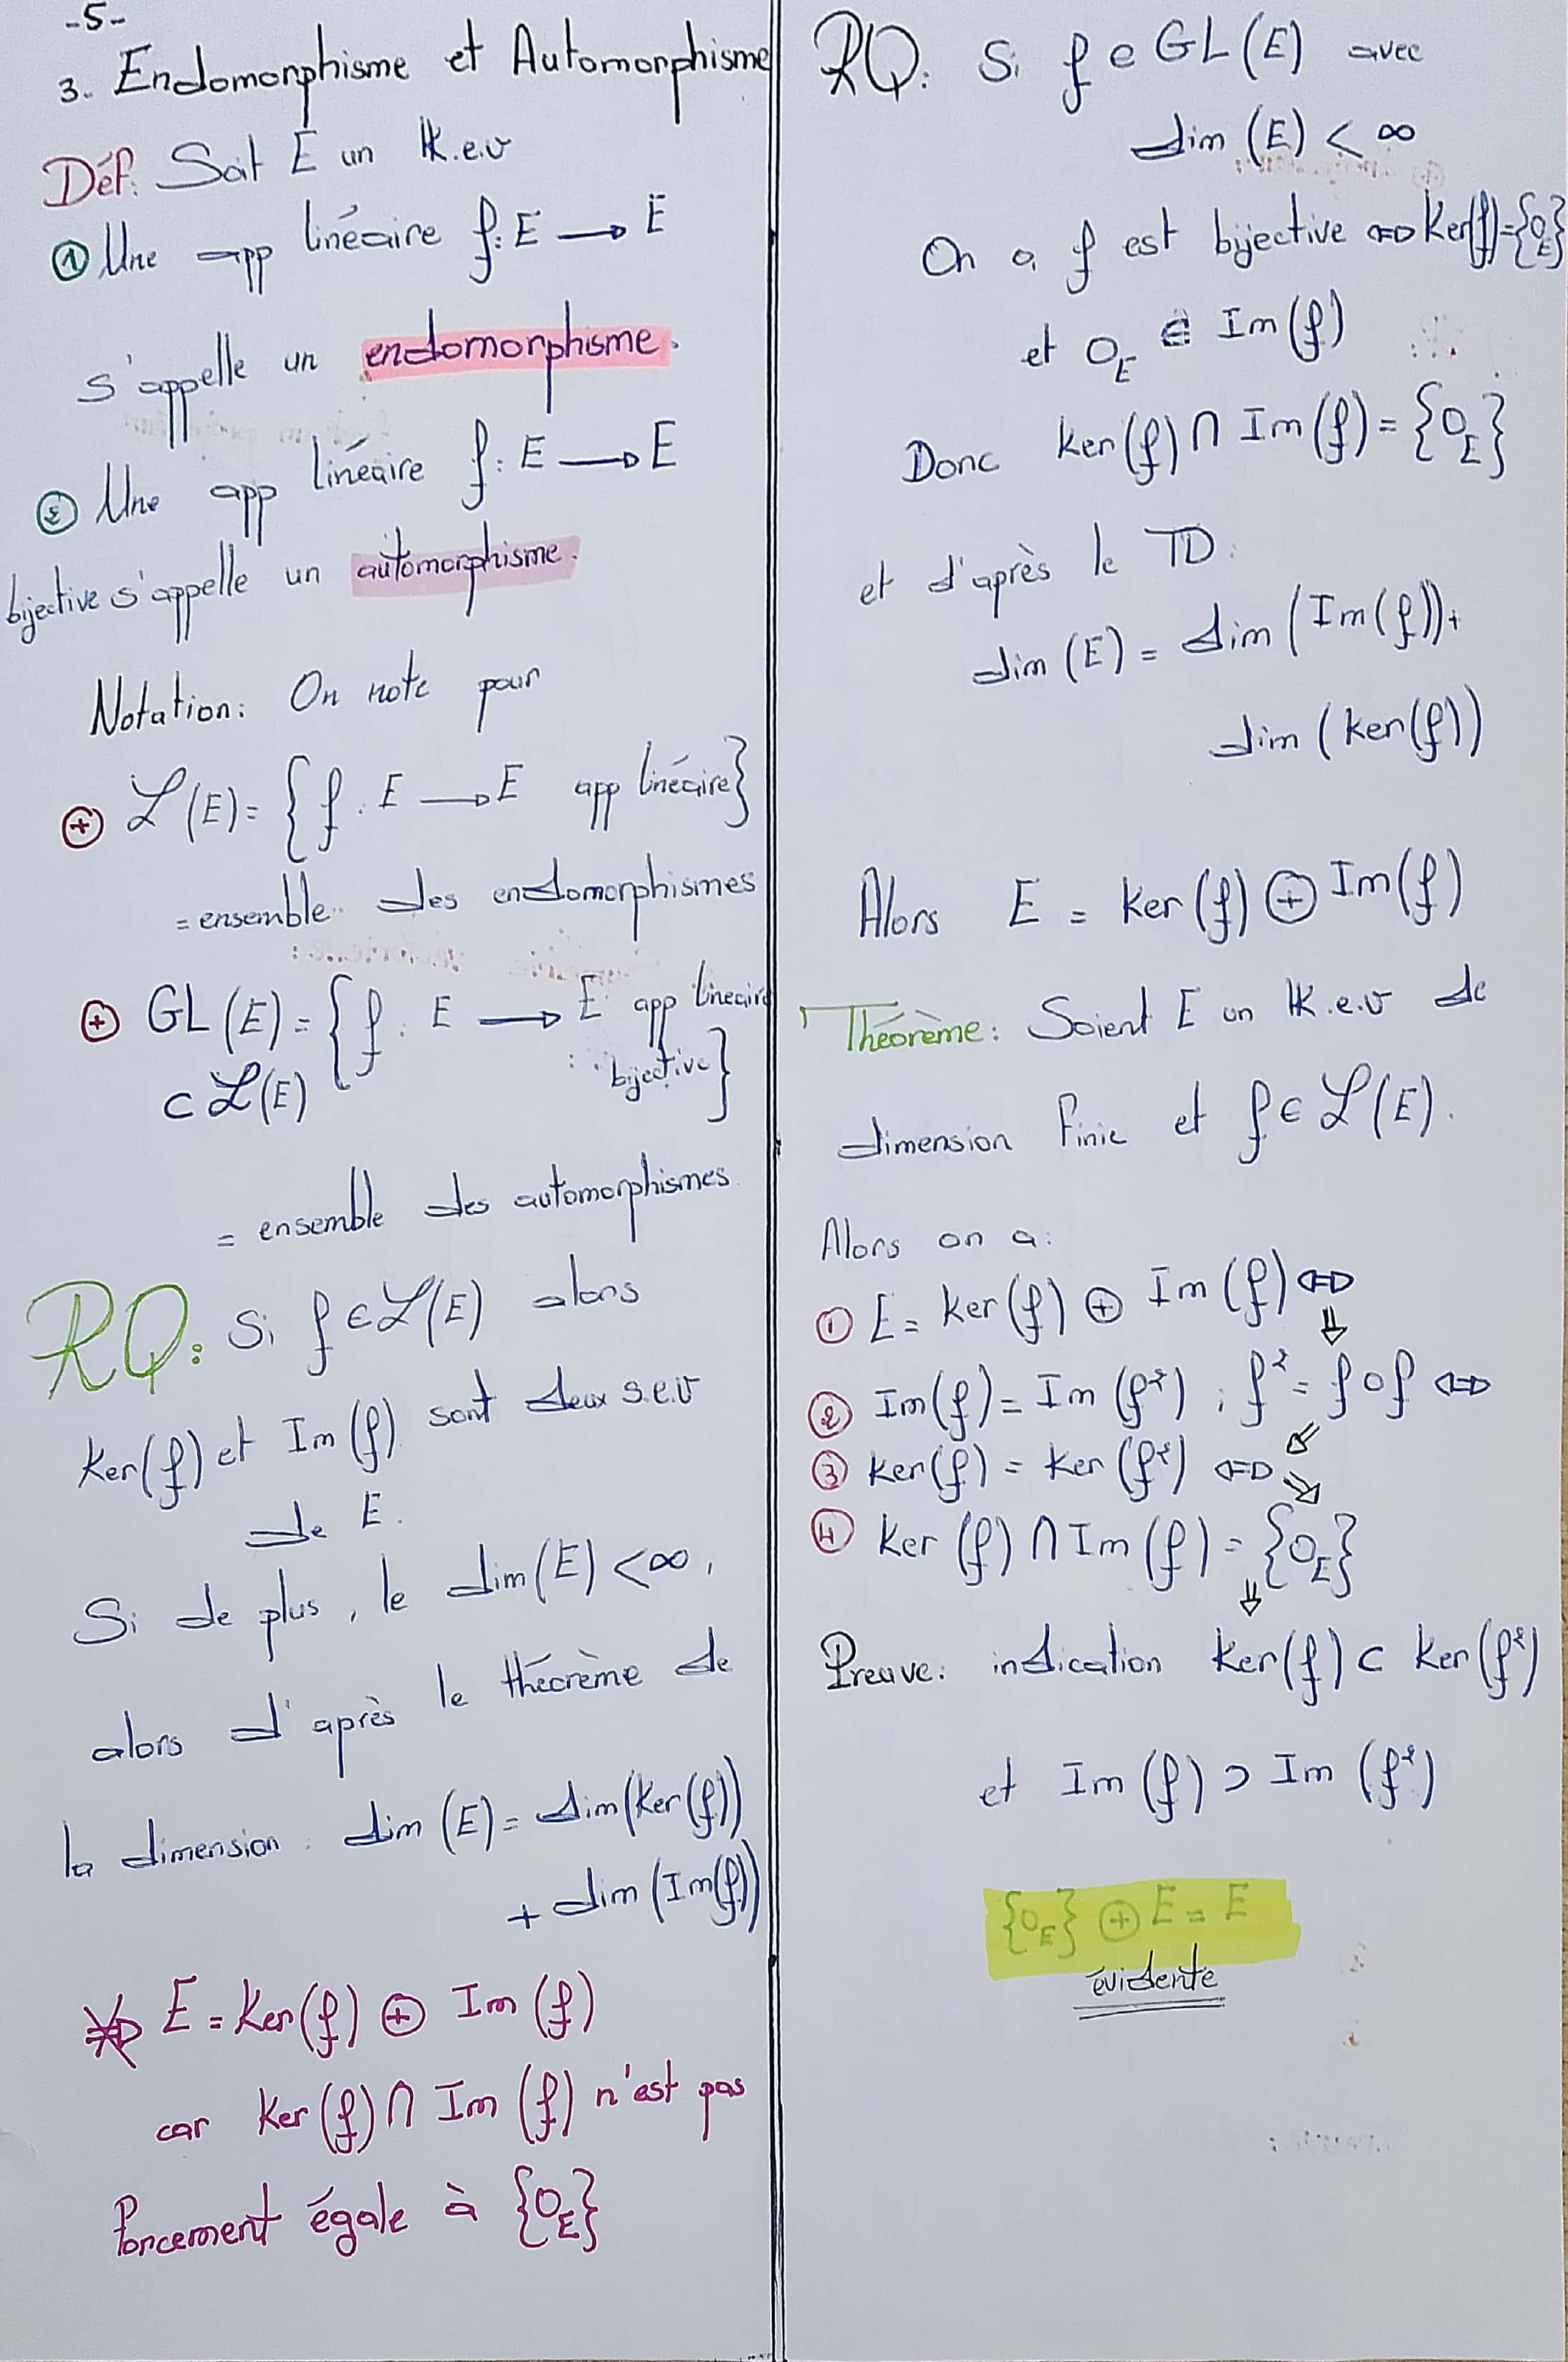 -5-
3. Endomorphisme et Automorphisme
Déf: Soit E un K.e.v
① Une app linéaire f: E → E
s'appelle un endomorphisme.
② Une app linéaire f: E → E
bijective s'appelle un automorphisme.
Notation: On note pour
⊕ ℒ(E) = {f: E → E app linéaire}
= ensemble des endomorphismes
⊕ GL(E) = {f: E → E app lineaire
⊂ ℒ(E) bijective}
= ensemble des automorphismes.
RQ: Si f ∈ ℒ(E) alors
Ker(f) et Im(f) sont deux s.e.v
de E.
Si de plus, le dim(E) < ∞,
alors d'après le théorème de
la dimension: dim(E) = dim(Ker(f))
+ dim(Im(f))
⇏ E = Ker(f) ⊕ Im(f)
car Ker(f) ∩ Im(f) n'est pas
forcement égale à {0_E}
RQ: Si f ∈ GL(E) avec
dim(E) < ∞
On a f est bijective ⇔ Ker(f) = {0_E}
et 0_E ∈ Im(f)
Donc Ker(f) ∩ Im(f) = {0_E}
et d'après le TD:
dim(E) = dim(Im(f)) +
dim(Ker(f))
Alors E = Ker(f) ⊕ Im(f)
Théorème: Soient E un K.e.v de
dimension finie et f ∈ ℒ(E).
Alors on a:
① E = Ker(f) ⊕ Im(f) ⇔
⇓
② Im(f) = Im(f²) ; f² = f o f ⇔
⇙
③ Ker(f) = Ker(f²) ⇔
⇘
④ Ker(f) ∩ Im(f) = {0_E}
⇓
Preuve: indication Ker(f) ⊂ Ker(f²)
et Im(f) ⊃ Im(f²)
{0_E} ⊕ E = E
évidente